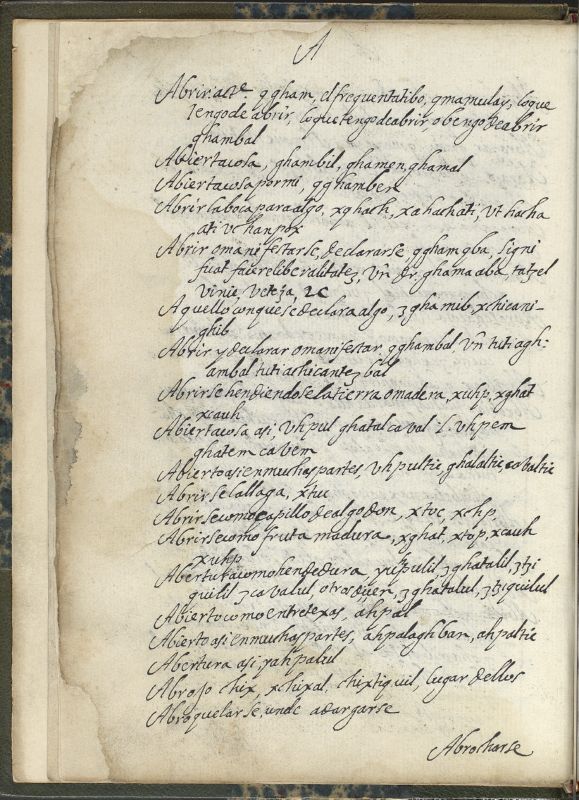 A
Abrir. actᵉ. qgham, el frequentatibo, qmamulay, lo que
tengo de abrir, lo que tengo de abrir, o bengo de abrir
ghambal
Abierta cosa, ghambil, ghamen, ghamal
Abierta cosa por mi, qghamben
Abrir la boca para algo, xqhach, xahachati, vt hacha
ati vchanpox
Abrir o manifestarse, declararse, qgham qba, signi
ficat facere liberalitatez, vn dr, ghama aba, tatzel
vinic, veteja, 2c
Aquello con que se declara algo, zghamib, xchicani-
ghib
Abrir y declarar o manifestar, qghambal vn tuti agh-
ambal tuti achicantez bal
Abrirse hendiendose la tierra o madera, xuhp, xghat
xcauh
Abierta cosa asi, vhpul ghatal caval l. vhpem
ghatem cavem
Abierto asi en muchas partes, vhpultic, ghalaltic cavaltic
Abrirse la llaga, xtuc
Abrirse como capillo de algodon, xtoc, xchp
Abrirse como fruta madura, xghat, xtop, xcauh
xuhp
Abertura como hendedura, yuhpulil, zghatalil, ztzi
quilil zcavalul, otros dizen, zghatalul, ztziquilul
Abierto como entretexas, ahpal
Abierto asi en muchas partes, ahpalaghban, ahpaltic
Abertura asi, yahpalul
Abrojo chix, xchixal, chixtiquil, lugar dellos
Abroquelarse, unde adargarse
Abrocharse